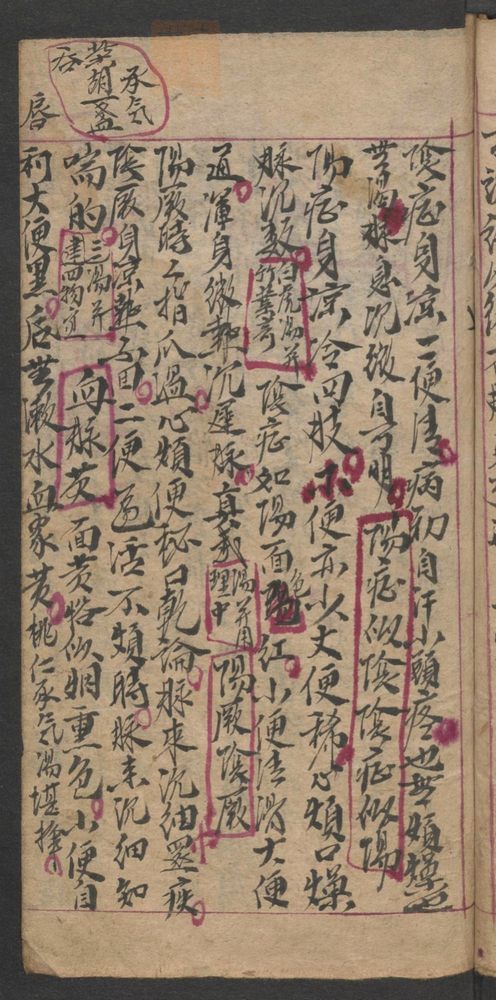 承气
柴胡一盏
吞
陰症身凉二便清病初自汗小頭疼也無煩燥無
湯脉息沉微自可明陽症似陰陰症似陽
陽症身凉冷四肢小便赤少大便稀心煩口燥
脉沉数白虎湯并竹葉奇陰症如陽面色紅小便清滑大便
通渾身微熱沉遲脉真武湯并用理中陽厥陰厥
陽厥時時指爪温心煩便秘口乾論脉来沉细還疾
陰厥身凉熱不回二便通活不煩時脉来沉细知
喘的三湯并建四物宜血脉黄面黄恰似烟熏色小便自
利大便黑后無漱水血家黄桃仁承气湯堪捨
唇